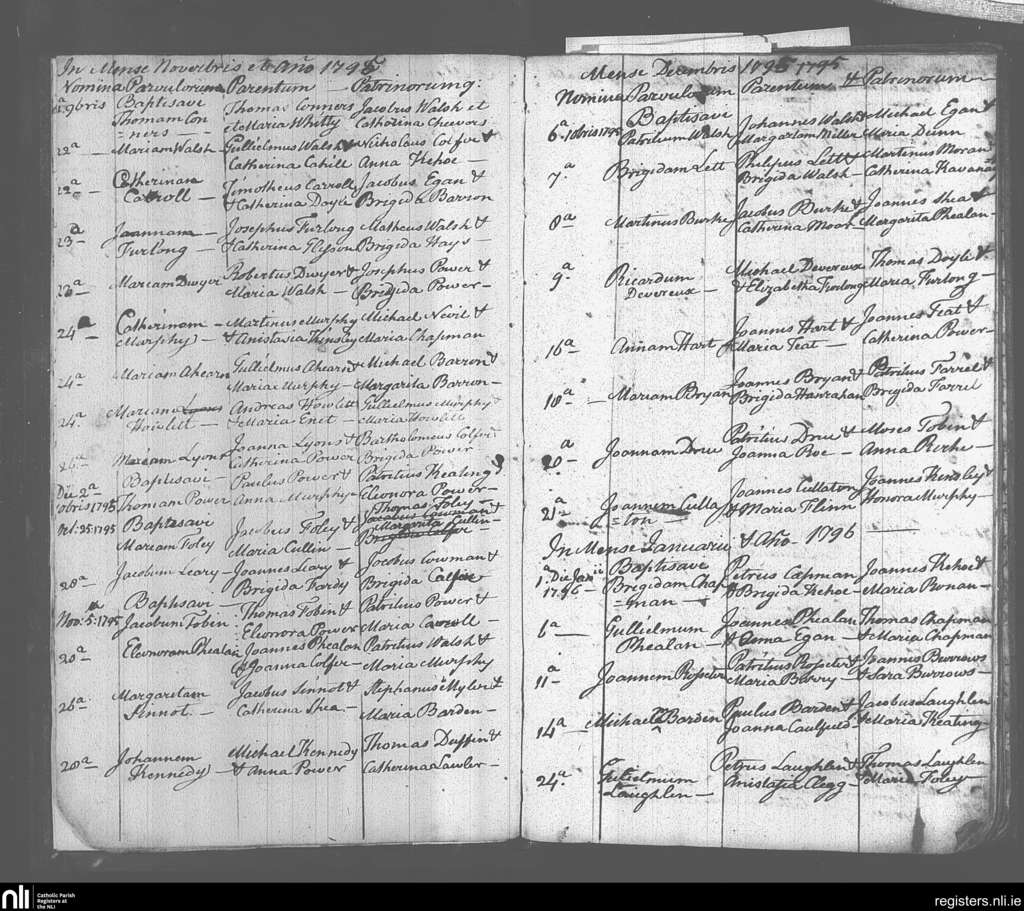 In Mense Novembris et Año 1795
Nomina Parvulorum Parentum — Patrinorumq:
19bris Baptisavi Thomas Conners Jacobus Walsh et
Thomam Con
=ners — & Maria Whitty Catharina Cheevers
22a — Mariam Walsh — Gullielmus Walsh & Nicholaus Colfer &
Catherina Cahill Anna Kehoe —
22a — Catherinam Timotheus Carroll Jacobus Egan &
Carroll — & Catherina Doyle Brigida Barron
23a Joannam — Josephus Furlong Matheus Walsh &
Furlong — & Catherina Glisson Brigida Hays —
23a — Mariam Dwyer Robertus Dwyer & Josephus Power &
Maria Walsh — Brigida Power —
24a Catherinam — Martinus Murphy Michael Nevil &
Murphy — & Anistasia Kinsley Maria Chapman
24a — Mariam Ahearn Gullielmus Ahearn & Michael Barron &
Maria Murphy — Margarita Barron —
24a — Mariam Andreas Howlett Gullielmus Murphy &
Howlett — & Maria Enet — Maria Howlett
Mariam Lyons Joanna Lyons & Bartholomeus Colfer
Catherina Power Brigida Power
Die 2a Baptisavi — Paulus Power & Patritius Keating &
obris 1795 Thomam Power Anna Murphy — Eleonora Power —
Oct. 25: 1795 Baptisavi Jacobus Foley & Thomas Foley
Mariam Foley Maria Cullin — Margarita Cullin —
28a — Jacobum Leary — Joannes Leary & Jacobus Cowman &
Brigida Fardy Brigida Colfer
Baptisavi —
Nov: 5: 1795 Jacobum Tobin : Thomas Tobin & Patritius Power &
Eleonora Power Maria Carroll —
20a — Eleonoram Phealan Joannes Phealan Patritius Walsh &
& Joanna Colfer — Maria Murphy
26a: Margaretam Jacobus Sinnot & Stephanus Myler &
Sinnot. — Catherina Shea — Maria Barden —
28a — Johannem Michael Kennedy Thomas Duffin &
Kennedy — & Anna Power Catherina Lawler —
Mense Decembris 1795 1795
Nomina Parvulorum Parentum & Patrinorum —
Baptisavi
6a 10bris 1795 Patritium Walsh Johannes Walsh & Michael Egan &
Margaritam Miller Maria Dunn
7a Brigidam Lett Philipus Lett & Martinus Moran
Brigida Walsh — Catherina Kavanagh
8a Martinus Burke Jacobus Burke & Joannes Shea &
Catherina Moor — Margarita Phealan —
9a Ricardum Michael Devereux Thomas Doyle &
Devereux — & Elizabetha Furlong Maria Furlong —
16a — Annam Hart Joannis Hart & Joannes Teat &
& Maria Teat — Catherina Power —
18a — Mariam Bryan Joannes Bryan & Patritius Farrel &
Brigida Hanrahan Brigida Farrel
20a — Joannam Drue Patritius Drue & Moses Tobin &
Joanna Roe — Anna —
21a — Joannem Culla Joannes Cullaton Joannes Kinsley &
=ton — & Maria Flinn Honora Murphy —
In Mense Januarii & Año 1796 —
1a Die Janii Baptisavi Petrus Capman Joannes Kehoe &
1796 — Brigidam Chap & Brigida Kehoe — Maria Ronan —
=man —
6a — Gullielmum Joannes Phealan Thomas Chapman
Phealan — & Anna Egan — & Maria Chapman
11a — Joannem Rosseter Patritius Rosseter & Joannes Burrows
Maria Berry — & Sara Burrows —
14a — Michael Barden Paulus Barden & Jacobus Laughlen
Joanna Caulfield — & Maria Keating —
24a — Gulielmum Petrus Laughlen & Thomas Laughlen
Laughlen — Anistasia Clegg — & Maria Foley —
nli Catholic Parish
Registers at
the NLI
registers.nli.ie